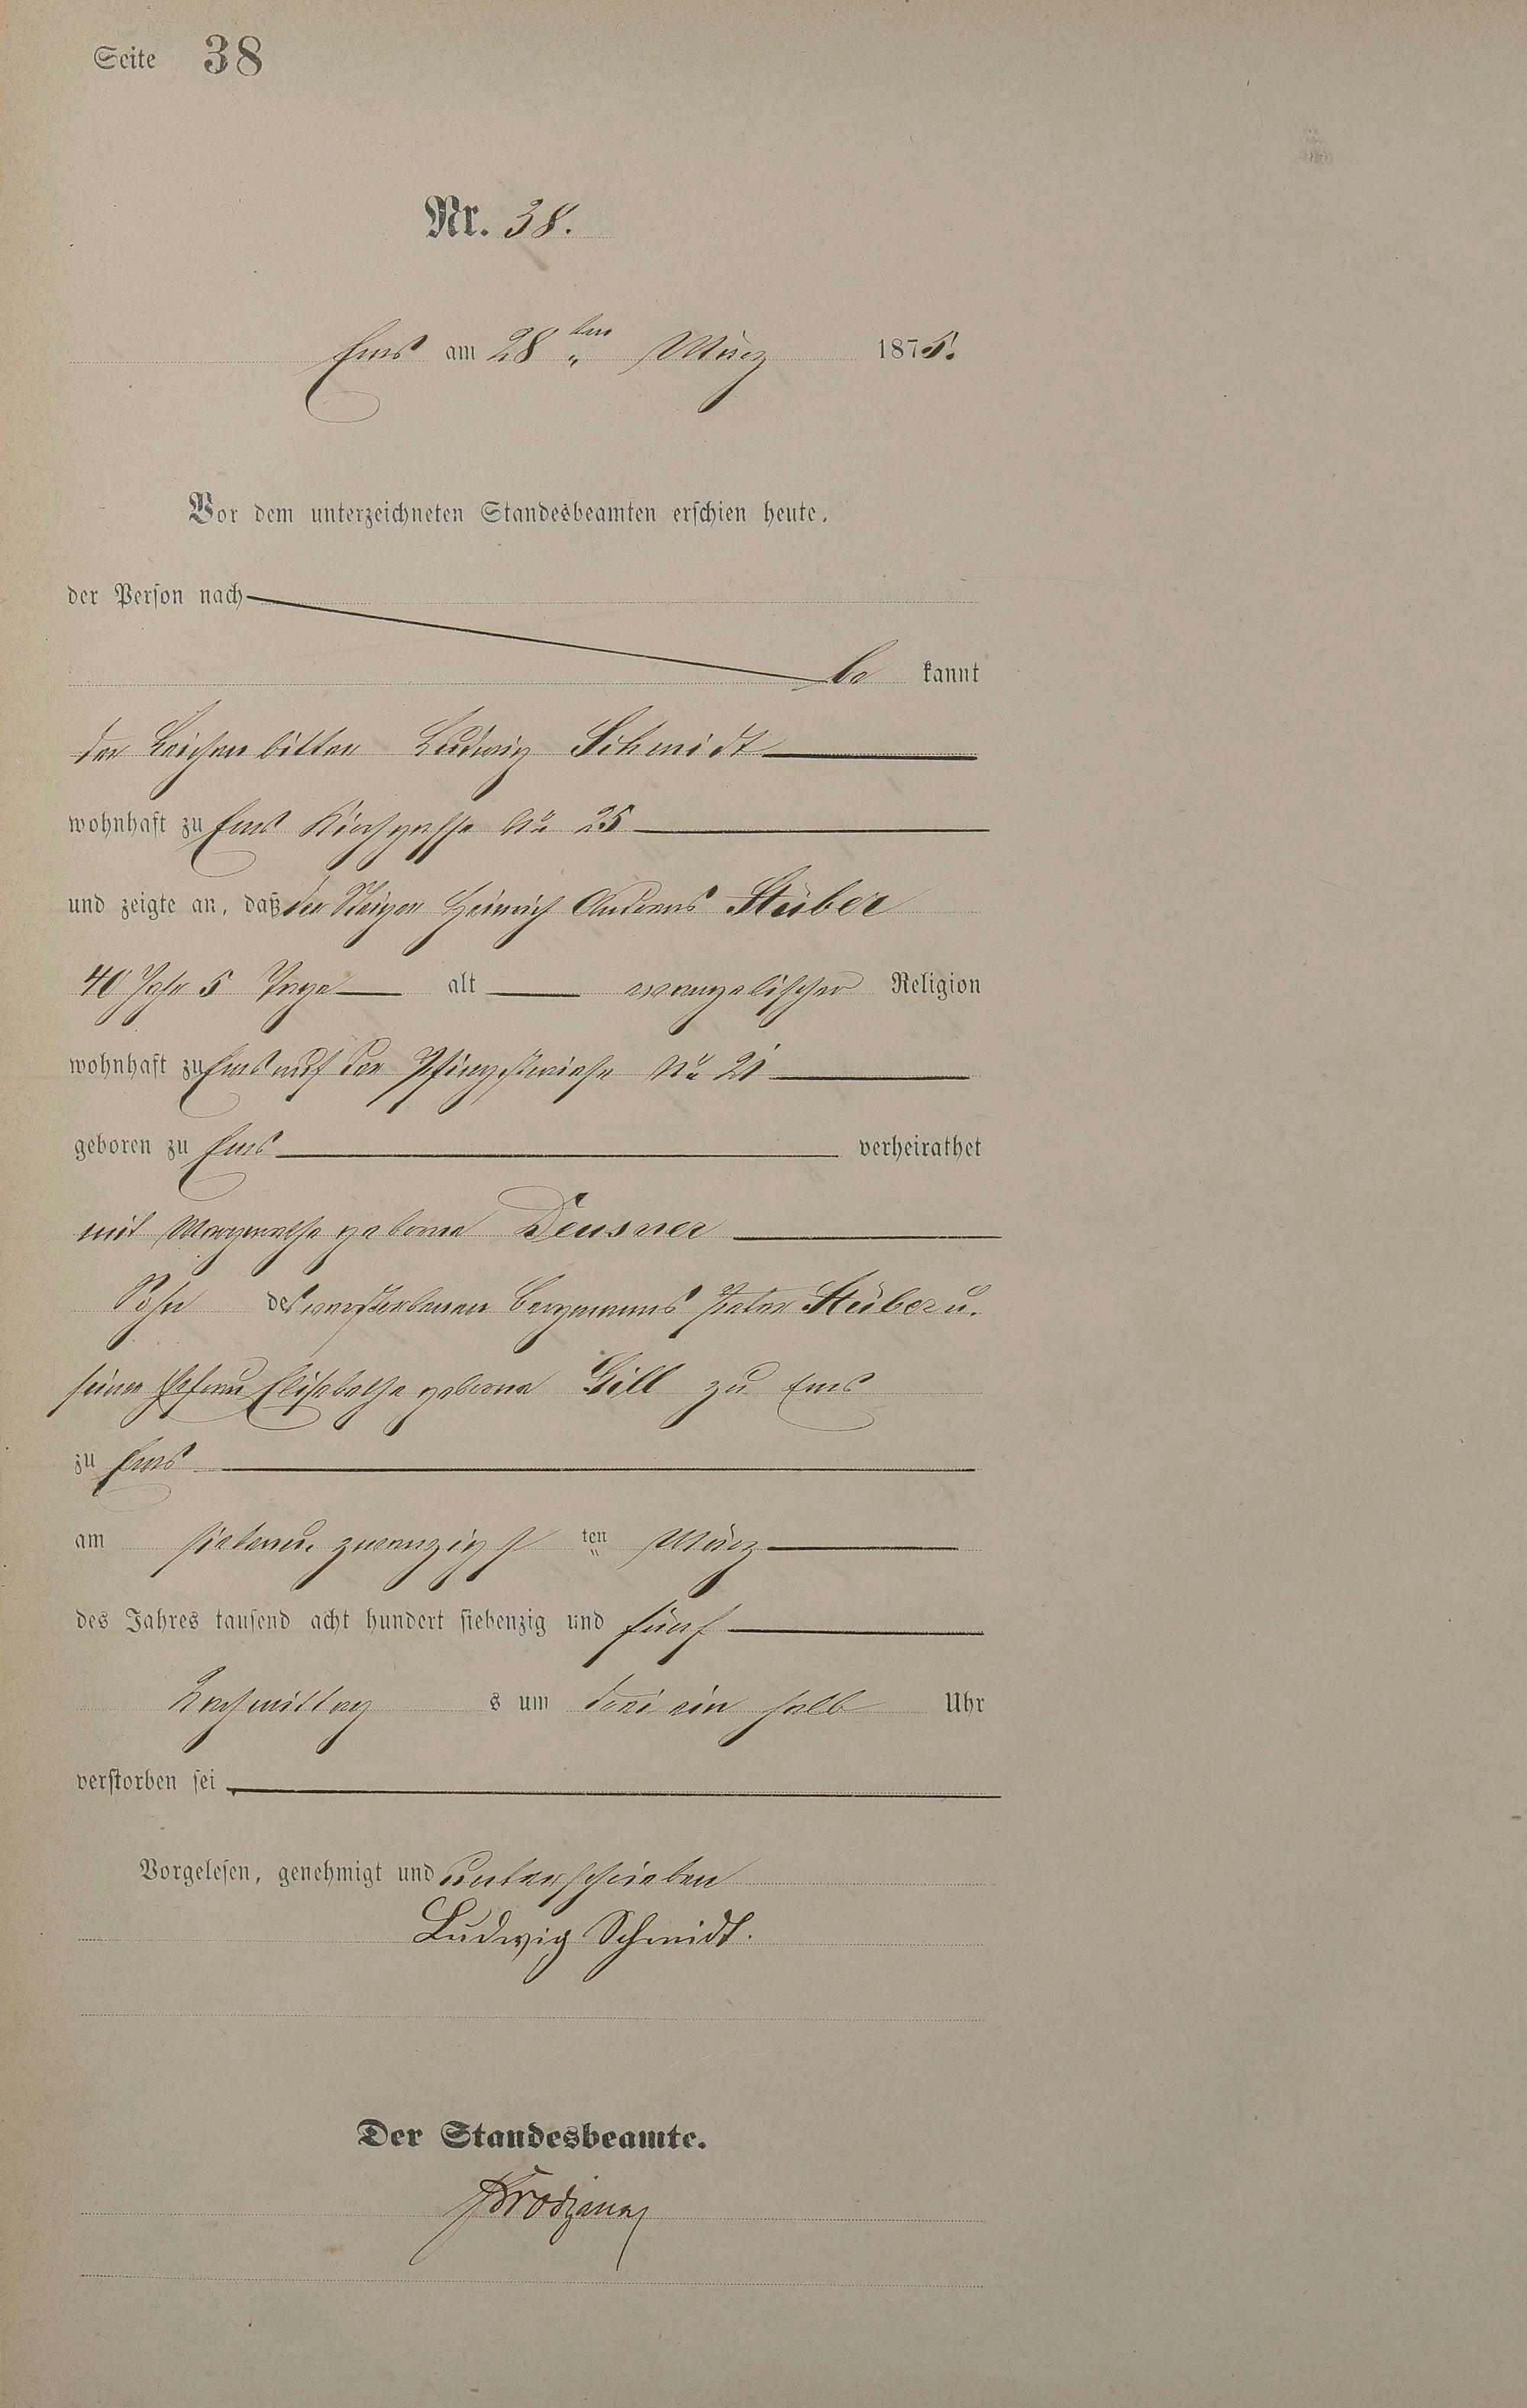 Seite 38
Nr. 38.
Ems am 28 ten März 1875.
Vor dem unterzeichneten Standesbeamten erschien heute,
der Person nach
be kannt
der Leichenbitter Ludwig Schmidt
wohnhaft zu Ems Kirchgasse No 25
und zeigte an, daß der Steiger Heinrich Andreas Stüber
40 Jahr 5 Tage alt evangelischer Religion
wohnhaft zu Ems auf der Pfingstwiese No 21
geboren zu Ems verheirathet
mit Margarethe geborne Deusner
Sohn des verstorbenen Bergmanns Peter Stüber u.
seiner Ehefrau Elisabetha geborne Gill zu Ems
zu Ems
am sieben u. zwanzigst ten März
des Jahres tausend acht hundert siebenzig und fünf
Nachmittag s um drei ein halb Uhr
verstorben sei
Vorgelesen, genehmigt und unterschrieben
Ludwig Schmidt.
Der Standesbeamte.